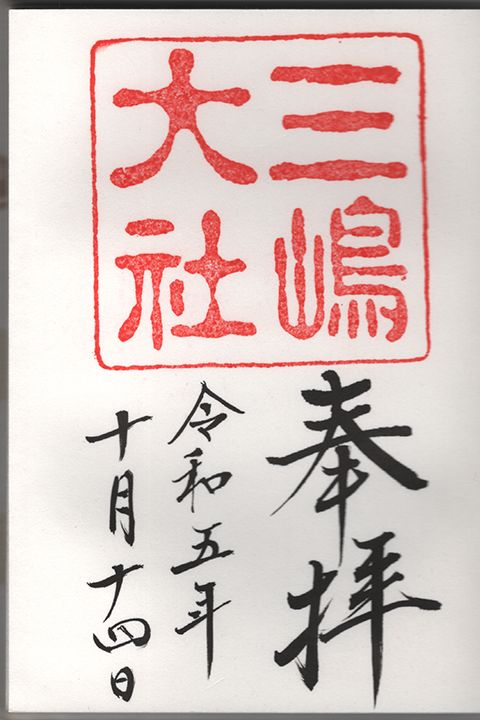 三嶋
大社
奉拝
令和五年
十月十四日